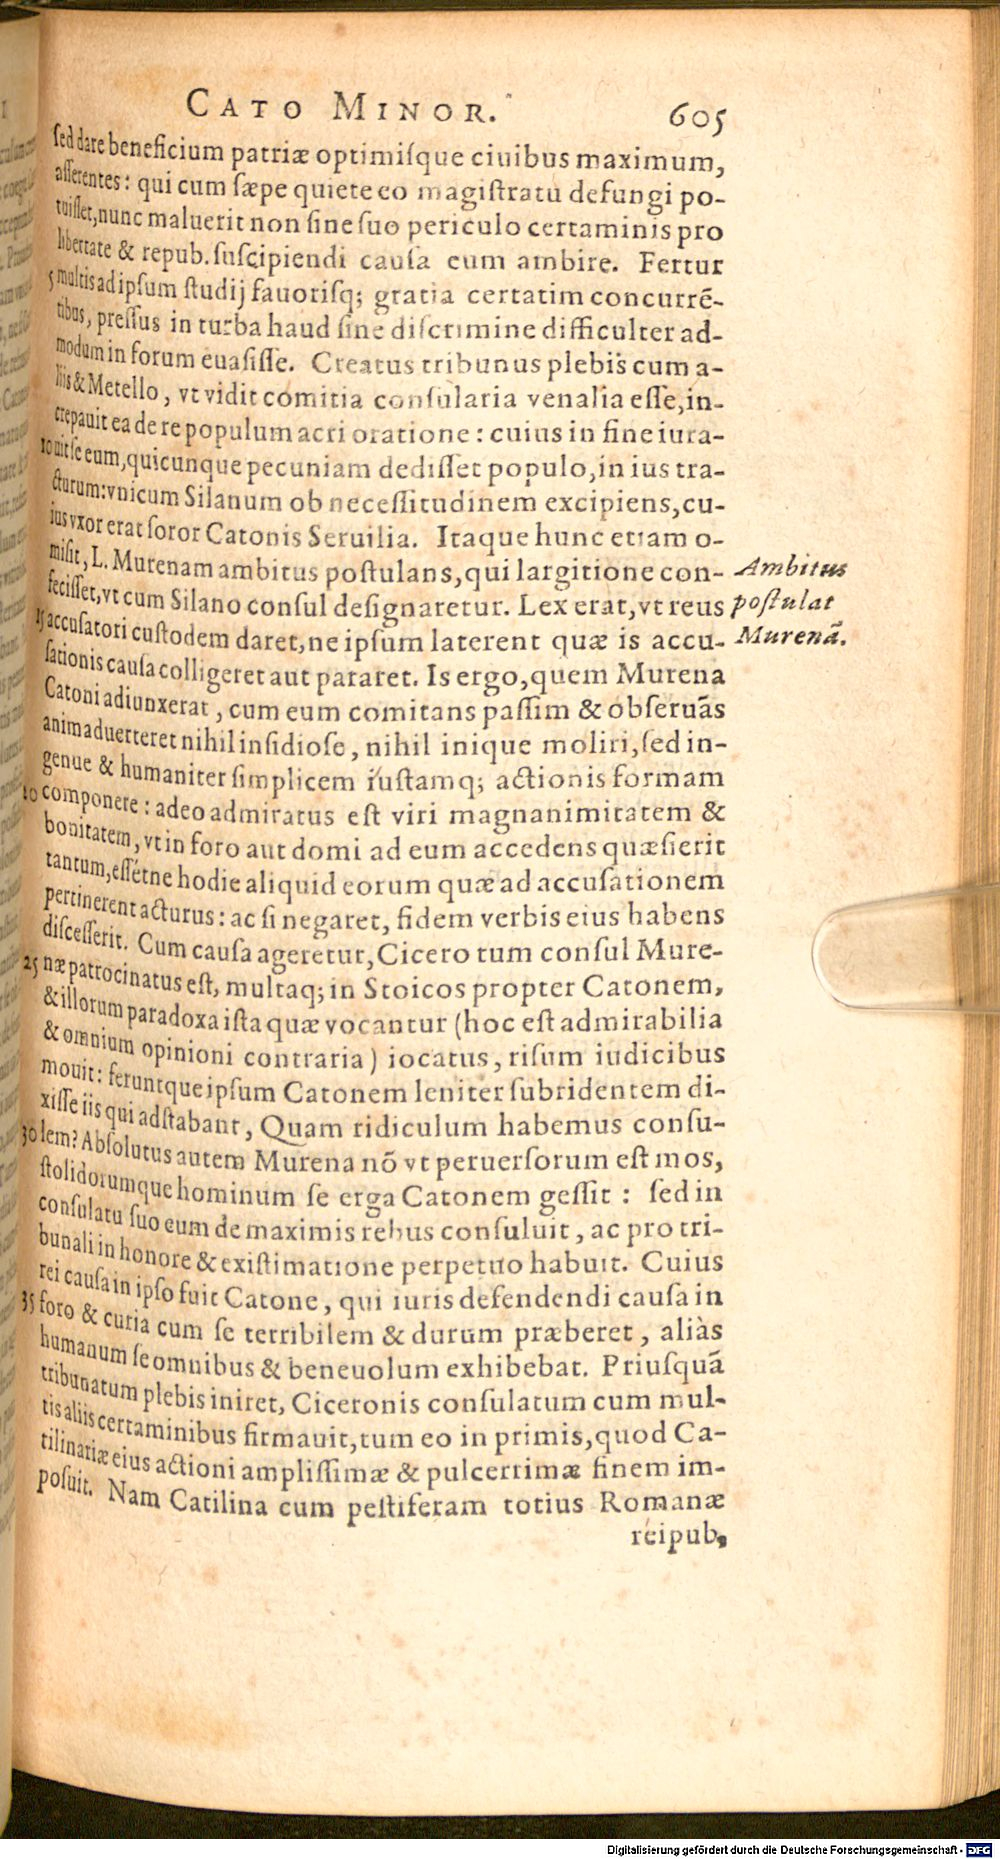 CATO MINOR. 605
ſed dare beneficium patriæ optimiſque ciuibus maximum,
afferentes: qui cum ſæpe quiete eo magiſtratu defungi po-
tuiſſet, nunc maluerit non ſine ſuo periculo certaminis pro
libertate & repub. ſuſcipiendi cauſa eum ambire. Fertur
5 multis ad ipſum ſtudij fauoriſq; gratia certatim concurrē-
tibus, preſſus in turba haud ſine diſcrimine difficulter ad-
modum in forum euaſiſſe. Creatus tribunus plebis cum a-
liis & Metello, vt vidit comitia conſularia venalia eſſe, in-
crepauit ea de re populum acri oratione: cuius in fine iura-
10 uit ſe eum, quicunque pecuniam dediſſet populo, in ius tra-
cturum: vnicum Silanum ob neceſſitudinem excipiens, cu-
ius vxor erat ſoror Catonis Seruilia. Itaque hunc etiam o-
miſit, L. Murenam ambitus poſtulans, qui largitione con-
Ambitus
feciſſet, vt cum Silano conſul deſignaretur. Lex erat, vt reus
poſtulat
15 accuſatori cuſtodem daret, ne ipſum laterent quæ is accu-
Murenā.
ſationis cauſa colligeret aut pararet. Is ergo, quem Murena
Catoni adiunxerat, cum eum comitans paſſim & obſeruās
animaduerteret nihil inſidioſe, nihil inique moliri, ſed in-
genue & humaniter ſimplicem iuſtamq; actionis formam
20 componere: adeo admiratus eſt viri magnanimitatem &
bonitatem, vt in foro aut domi ad eum accedens quæſierit
tantum, eſſétne hodie aliquid eorum quæ ad accuſationem
pertinerent acturus: ac ſi negaret, fidem verbis eius habens
diſceſſerit. Cum cauſa ageretur, Cicero tum conſul Mure-
25 næ patrocinatus eſt, multaq; in Stoicos propter Catonem,
& illorum paradoxa iſta quæ vocantur (hoc eſt admirabilia
& omnium opinioni contraria) iocatus, riſum iudicibus
mouit: feruntque ipſum Catonem leniter ſubridentem di-
xiſſe iis qui adſtabant, Quam ridiculum habemus conſu-
30 lem? Abſolutus autem Murena nō vt peruerſorum eſt mos,
ſtolidorumque hominum ſe erga Catonem geſſit: ſed in
conſulatu ſuo eum de maximis rebus conſuluit, ac pro tri-
bunali in honore & exiſtimatione perpetuo habuit. Cuius
rei cauſa in ipſo fuit Catone, qui iuris defendendi cauſa in
35 foro & curia cum ſe terribilem & durum præberet, aliàs
humanum ſe omnibus & beneuolum exhibebat. Priuſquā
tribunatum plebis iniret, Ciceronis conſulatum cum mul-
tis aliis certaminibus firmauit, tum eo in primis, quod Ca-
tilinariæ eius actioni ampliſſimæ & pulcerrimæ finem im-
poſuit. Nam Catilina cum peſtiferam totius Romanæ
reipub,
Digitalisierung gefördert durch die Deutsche Forschungsgemeinschaft - DFG